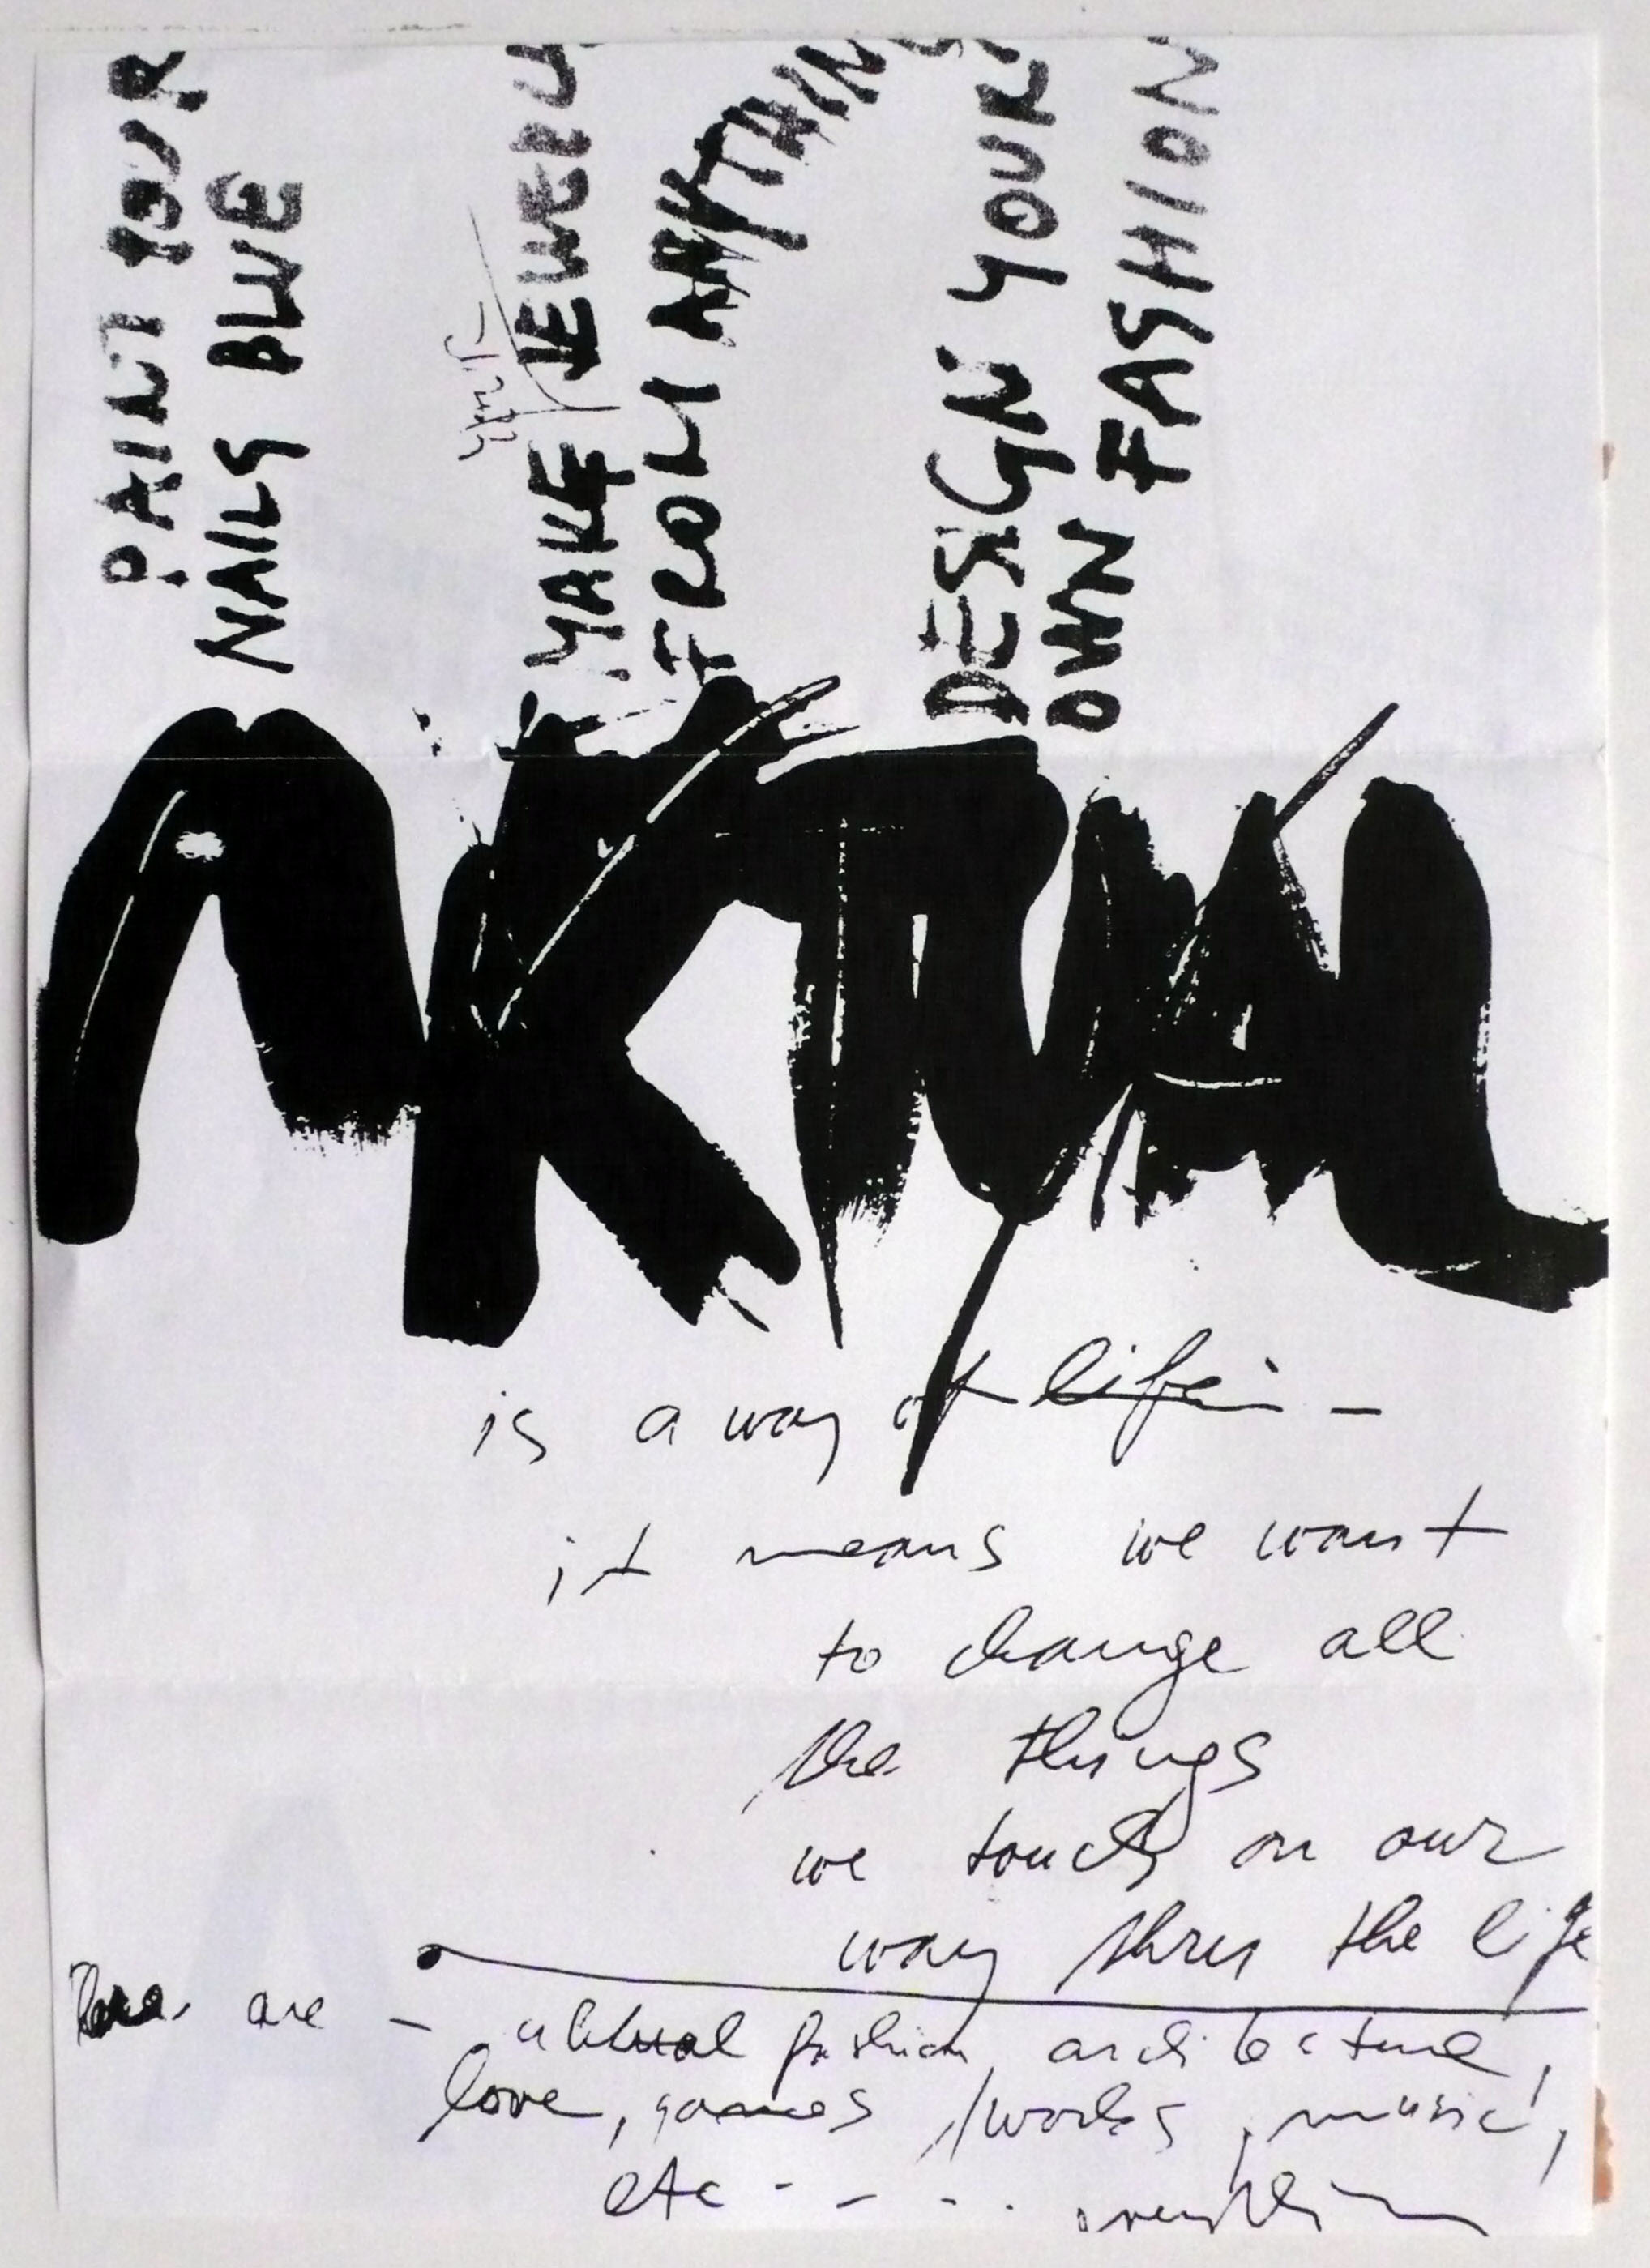 PAINT YOUR
NAILS BLUE
MAKE JEWERLY
FROM ANYTHING
DESIGN YOUR
OWN FASHION
AKTUAL
is a way of life -
it means we want
to change all
the things
we touch on our
way thru the life
There are - aktual fashion, architecture,
love, games / works, music,
etc - - - . .